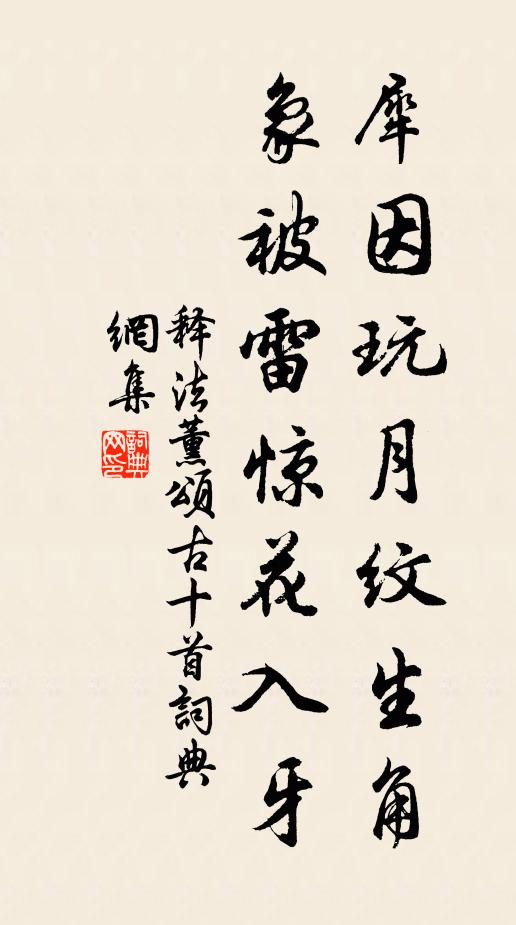 犀因玩月纹生角
象被雷惊花入牙
释法薰颂古十首詞典
網集
詞典網印